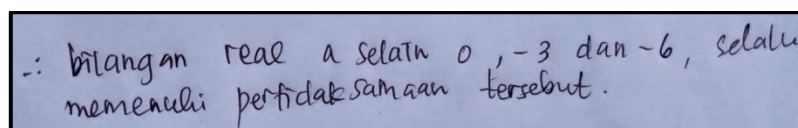 ∴ bilangan real a selain 0, -3 dan -6, selalu
memenuhi pertidaksamaan tersebut.